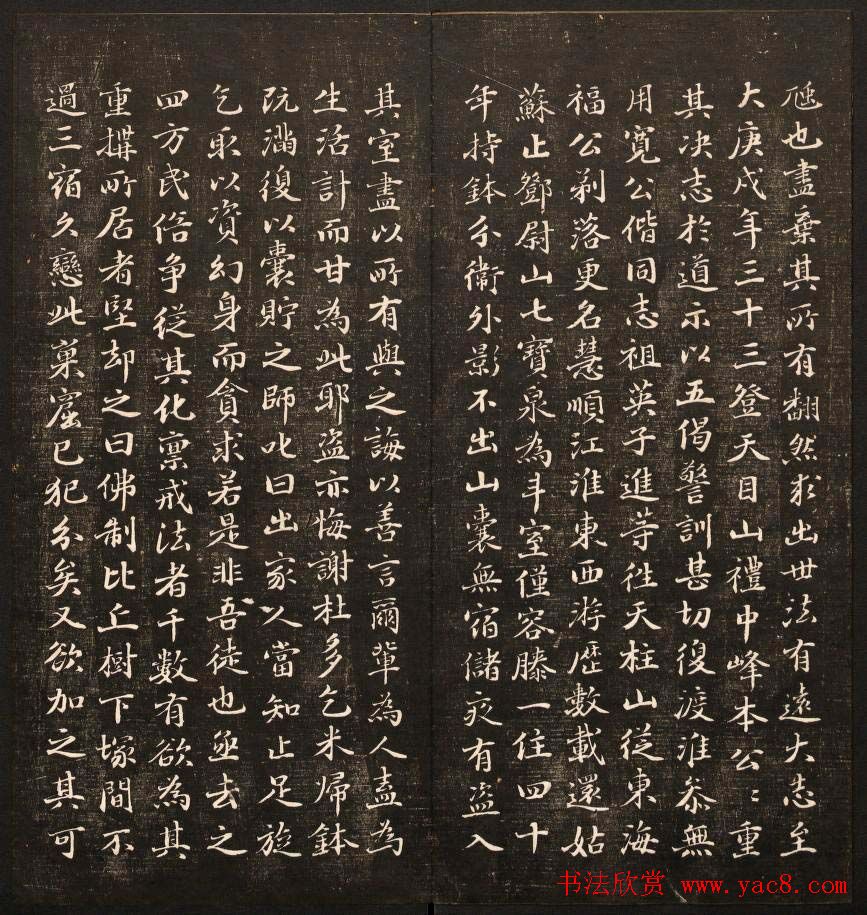 也盡棄其所有翻然求出世法有遠大志至
大庚戌年三十三登天目山禮中峰本公〻重
其决志於道示以五偈警訓甚切復渡淮叅無
用寬公偕同志祖英子進等往天柱山從東海
福公剃落更名慧順江淮東西游歷數載還姑
蘇止鄧尉山七寶泉為斗室僅容膝一住四十
年持鉢分衛外影不出山囊無宿儲夜有盜入
其室盡以所有與之誨以善言爾輩為人盍為
生活計而甘為此耶盜亦悔謝杜多乞米歸鉢
既滿復以囊貯之師叱曰出家人當知止足旋
乞取以資幻身而貪求若是非吾徒也亟去之
四方民俗争從其化禀戒法者千數有欲為其
重搆所居者堅却之曰佛制比丘樹下塚間不
過三宿久戀此巢窟已犯分矣又欲加之其可
书法欣赏 www.yac8.com